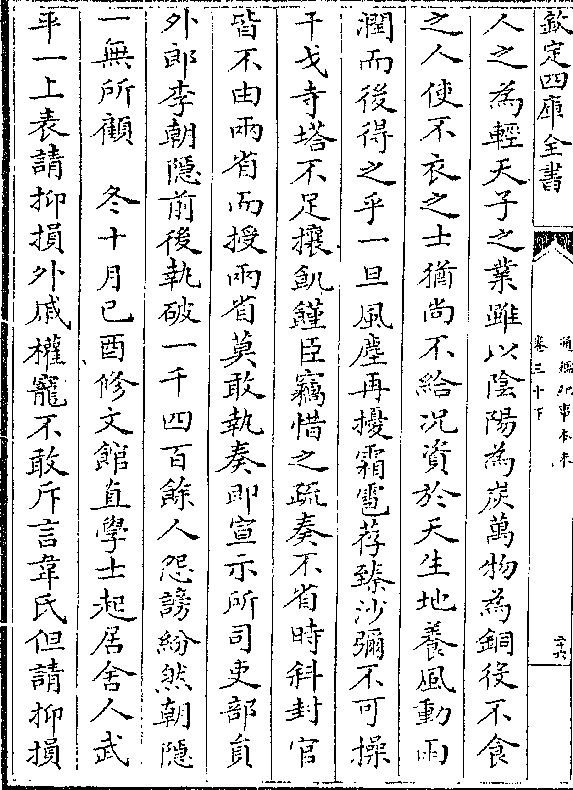 欽定四庫全書
通鑑紀事本末
卷三十下
二十六
人之為輕天子之業雖以陰陽為炭萬物為銅役不食
之人使不衣之士猶尚不給况資於天生地養風動雨
潤而後得之乎一旦風塵再擾霜雹荐臻沙彌不可操
干戈寺塔不足攘飢饉臣竊惜之疏奏不省時斜封官
皆不由兩省而授兩省莫敢執奏即宣示所司吏部員
外郎李朝隱前後執破一千四百餘人怨謗紛然朝隱
一無所顧　冬十月己酉修文館直學士起居舍人武
平一上表請抑損外戚權寵不敢斥言韋氏但請抑損